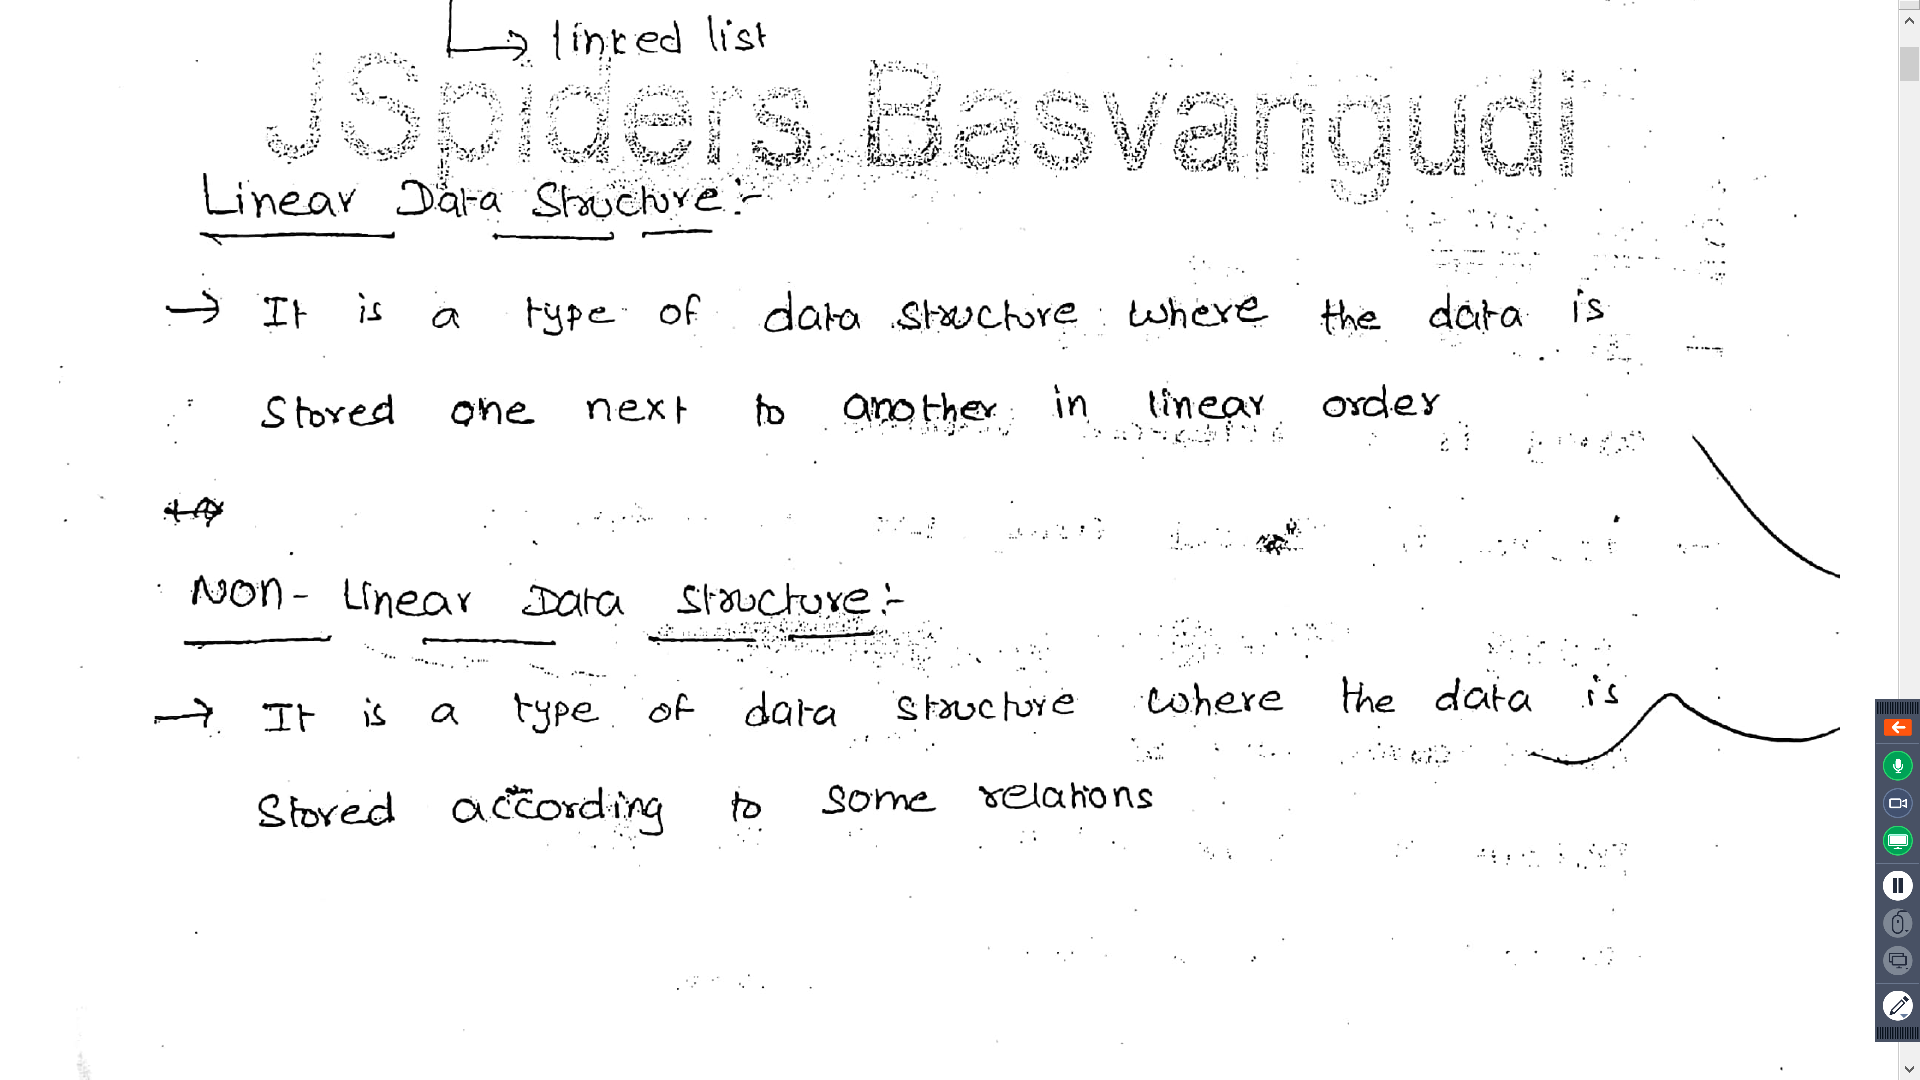 → linked list
JSpiders Basvangudi
Linear Data Structure:-
→ It is a type of data structure where the data is
Stored one next to another in linear order
Non-Linear Data Structure:-
→ It is a type of data structure where the data is
Stored according to some relations